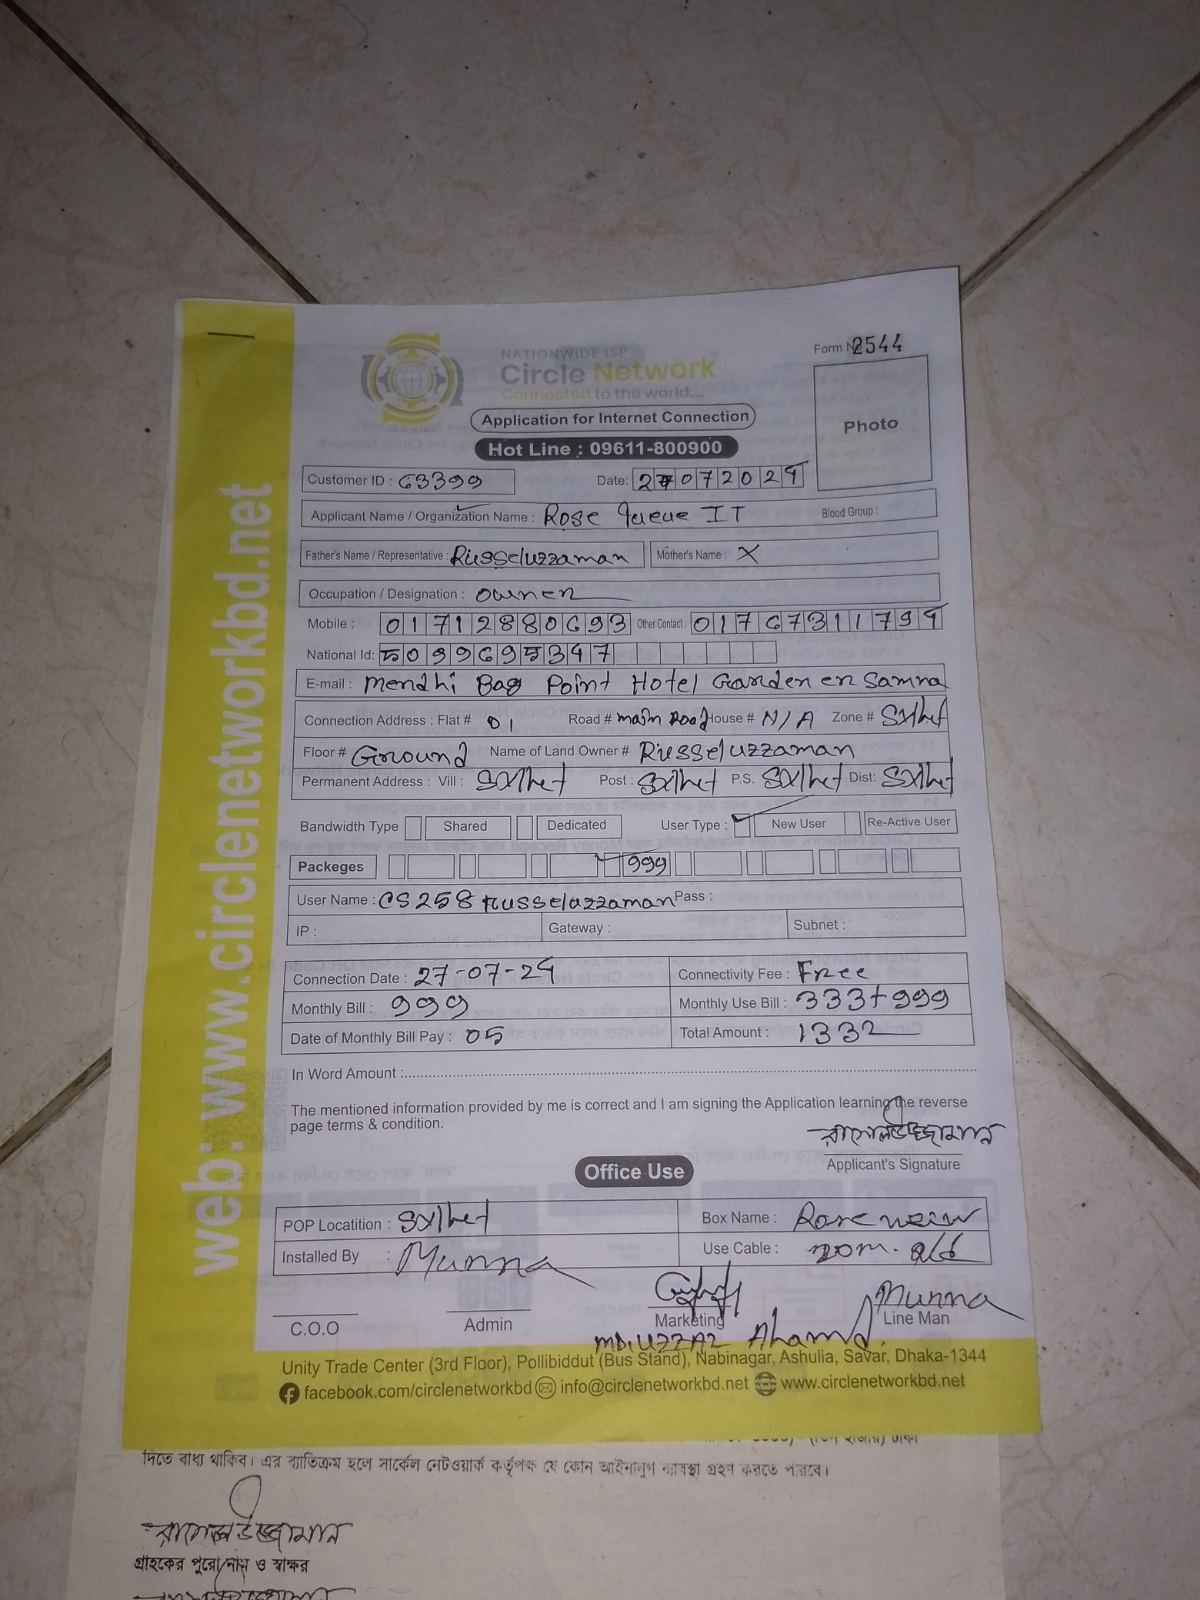 Form No 2544
NATIONWIDE ISP
Circle Network
Connected to the world....
Application for Internet Connection
Photo
Hot Line : 09611-800900
Customer ID : 63399 Date: 27072024
Applicant Name / Organization Name : Rose IT Blood Group :
Father's Name / Representative : Russeluzzaman Mother's Name : X
Occupation / Designation : owner
Mobile : 01712880693 Other Contact : 01767311794
National Id: 5099695347
E-mail : Mendhi Bag Point Hotel Garden en Samna
Connection Address : Flat # 01 Road # main Road House # N/A Zone # Sylhet
Floor # Ground Name of Land Owner # Russeluzzaman
Permanent Address : Vill : Sylhet Post : Sylhet P.S. Sylhet Dist: Sylhet
Bandwidth Type Shared Dedicated User Type : New User Re-Active User
Packeges 999
User Name : CS258 Russeluzzaman Pass :
IP : Gateway : Subnet :
Connection Date : 27-07-24 Connectivity Fee : Free
Monthly Bill : 999 Monthly Use Bill : 333+999
Date of Monthly Bill Pay : 05 Total Amount : 1332
In Word Amount :
The mentioned information provided by me is correct and I am signing the Application learning the reverse
page terms & condition.
রাসেলউজ্জামান
Applicant's Signature
Office Use
POP Locatition : Sylhet Box Name :
Installed By : Munna Use Cable : 20m.
Munna
C.O.O Admin Marketing Line Man
MD. UZZAL Ahamd.
Unity Trade Center (3rd Floor), Pollibiddut (Bus Stand), Nabinagar, Ashulia, Savar, Dhaka-1344
facebook.com/circlenetworkbd info@circlenetworkbd.net www.circlenetworkbd.net
web: www.circlenetworkbd.net
দিতে বাধ্য থাকিব। এর ব্যতিক্রম হলে সার্কেল নেটওয়ার্ক কর্তৃপক্ষ যে কোন আইনানুগ ব্যবস্থা গ্রহণ করতে পারবে।
রাসেলউজ্জামান
গ্রাহকের পুরো নাম ও স্বাক্ষর